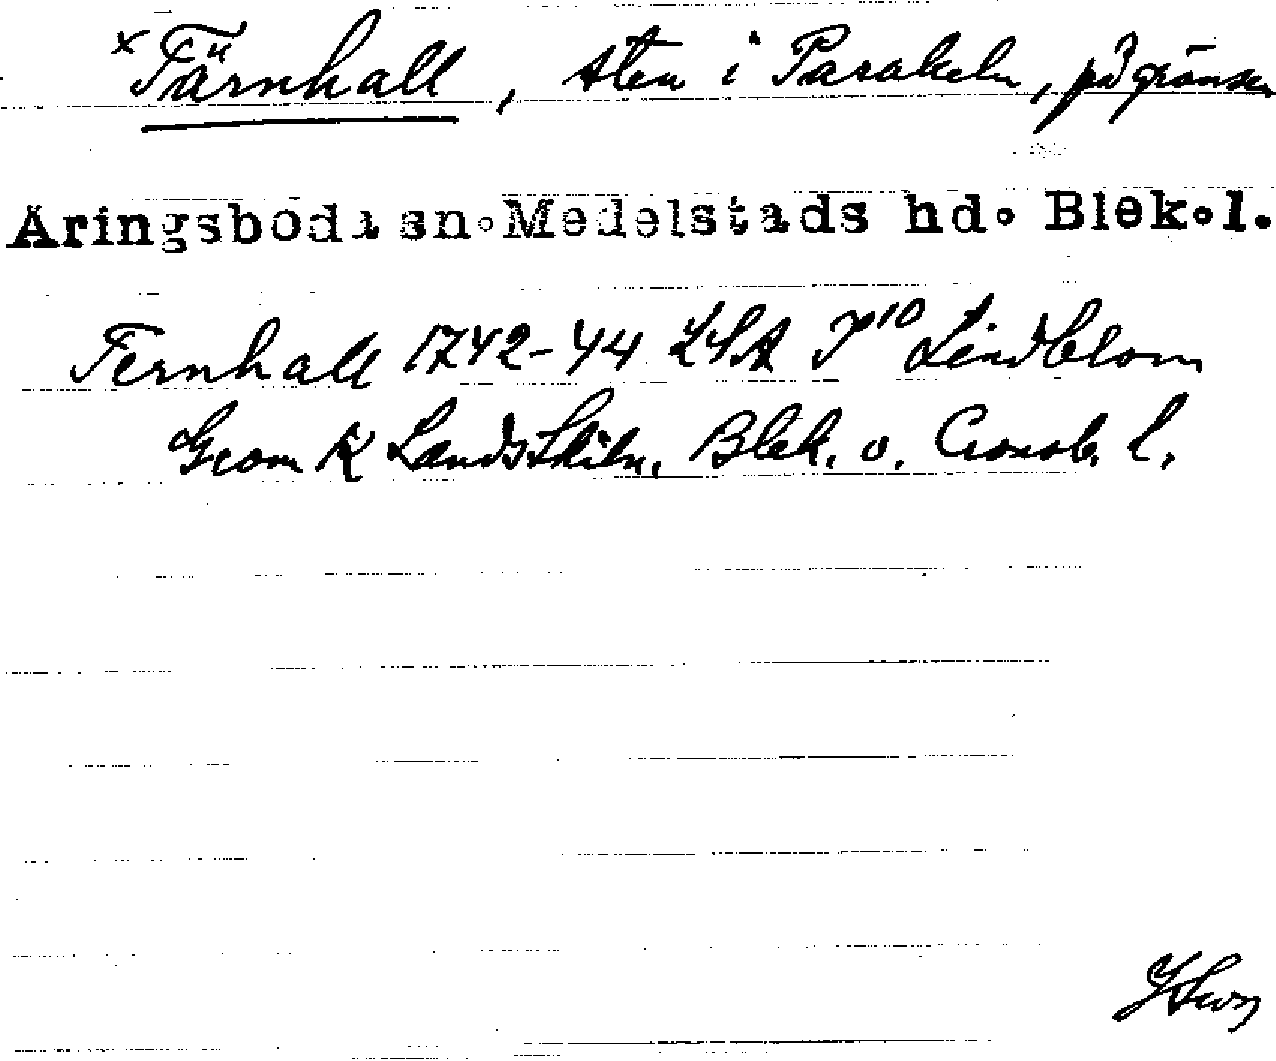 x Tärnhall, sten i Parakeln, på gränsen
Äringsboda sn. Medelstads hd. Blek. l.
Fernhall 1742-44 LSA J 10 Lindblom
Geom K Landsskiln. Blek. o. Cronob. l.